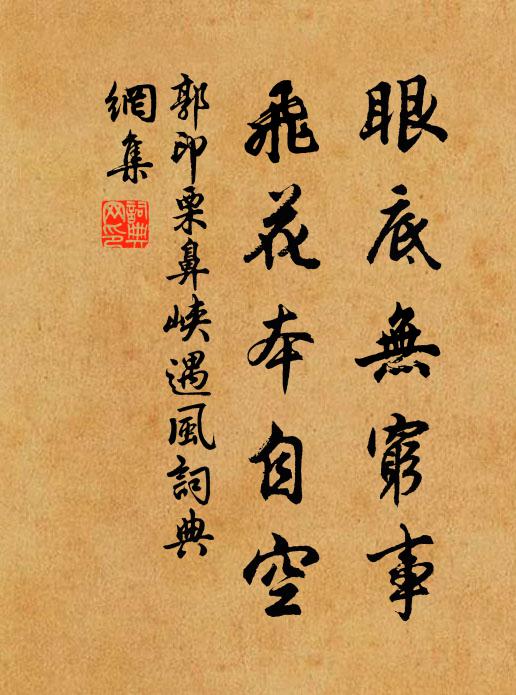 眼底無窮事
飛花本自空
郭印栗鼻峽遇風詞典
網集
詞典
网印